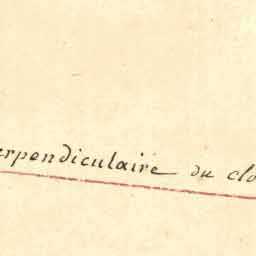 erpendiculaire du clo